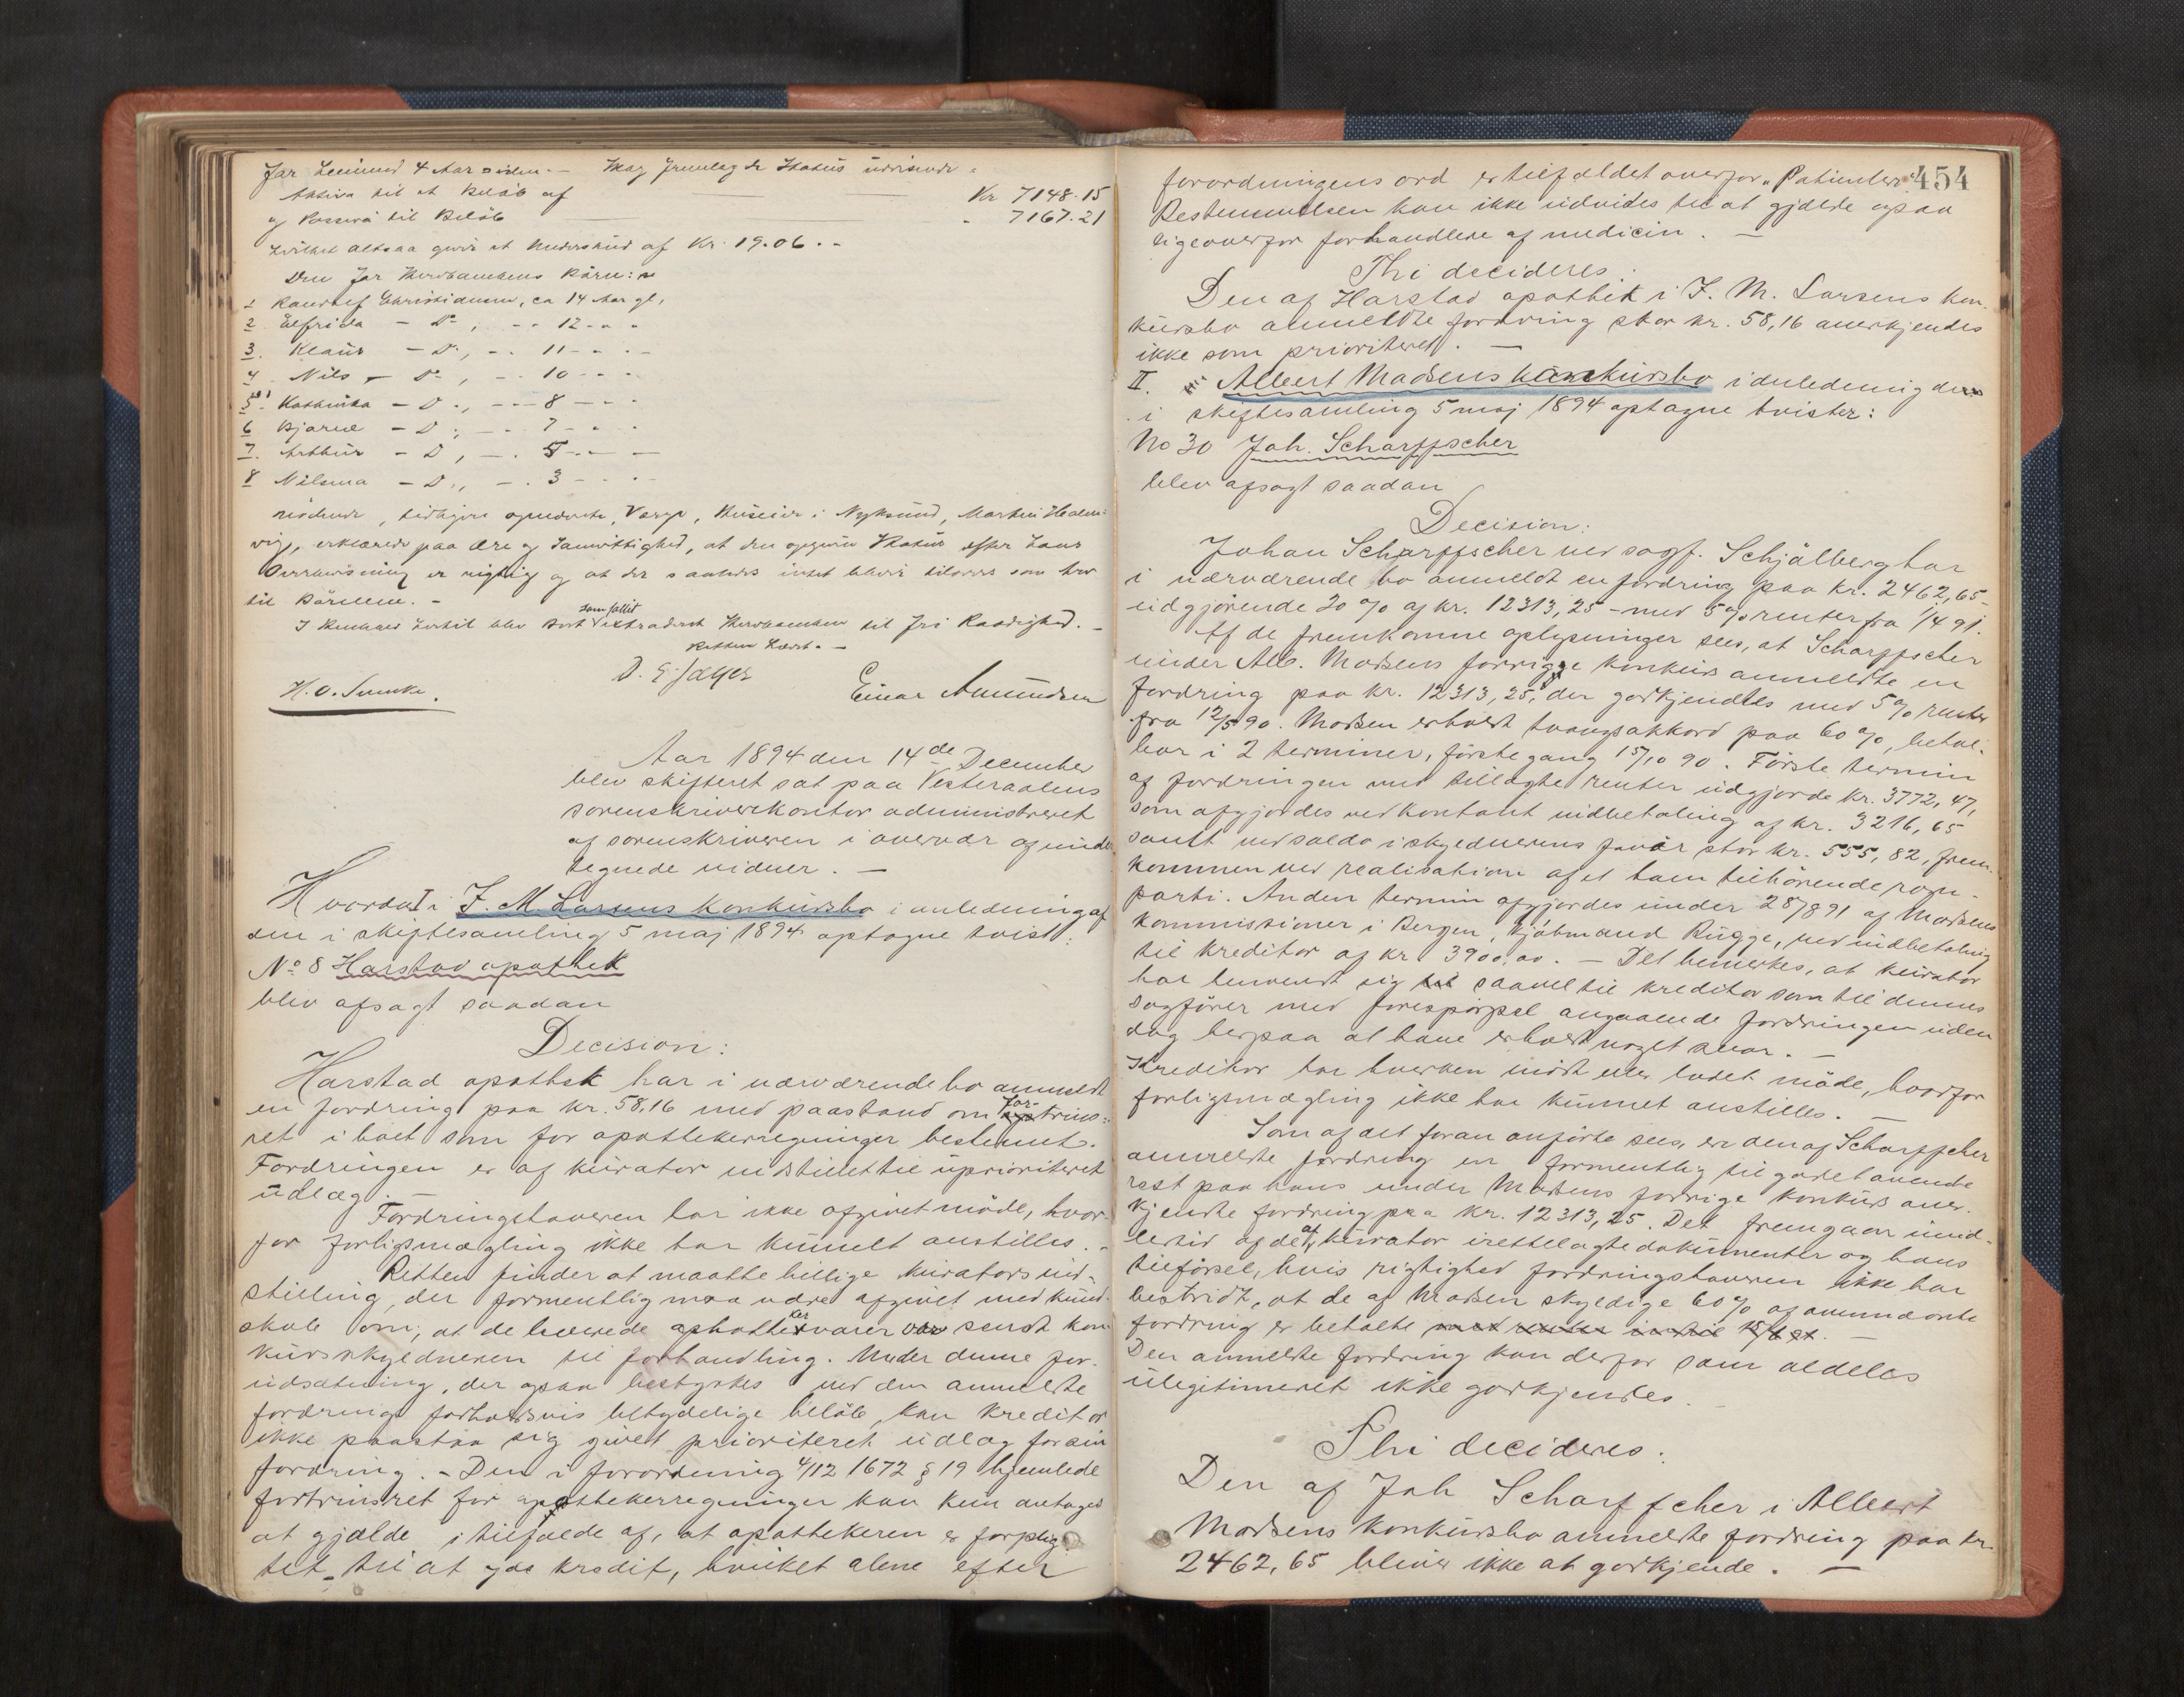 for 4 Aar siden. — Statüs
Aktiva til et Beløb af Kr 7148.15
og Passiva til Beløb " 7167.21
hvilket altsaa giver et Underskud af Kr. 19.06. -
Børn:
1 Christiansen, ca 14 Aar gl,
2 Elfrida — Do, - - 12 - - -
3. Klaus — Do, - - 11 - - -
4. Nils — Do, - - 10 - - -
5. Kathinka — Do, - - 8 - - -
6 Bjarne — Do, - - 7 - - -
7. Arthur — Do, - - 5 - - -
8 Nilsina — Do, - - 3 - - -
mødende, tidligere opnævnte Værge, i Nyksund, Martin
erklærede paa Ære og Samvittighed, at den opgivne Status efter hans
Overbevisning er rigtig og at der saaledes intet bliver tilovers som Arv
til Børnene. -
I Henhold hertil blev Boet som fallit extraderet til fri Raadighed. -
Retten hævet. -
Einar Amundsen
Aar 1894 den 14de December
blev skifteret sat paa Vesteraalens
sorenskriverkontor administreret
af sorenskriveren i overvær af under
tegnede vidner. —
Hvorda I i J. M. Larsens konkursbo i anledning af
den i skiftesamling 5 maj 1894 optagne tvist:
No 8 Harstad apothek
blev afsagt saadan
Decision:
Harstad apothek har i nærværende bo anmeldt
en fordring paa kr. 58,16 med paastand om fortrins-
ret i boet som for apothekerregninger bestemt.
Fordringen er af kurator indstillet til uprioriteret
udlæg. —
Fordringshaveren har ikke afgivet møde, hvor-
for forligsmægling ikke har kunnet anstilles. -
Retten finder at maatte billige kurators ind-
stilling, der formentlig maa være afgivet med kund-
skab om, at de leverede apothekervarer var sendt kon
kursskyldneren til forhandling. Under denne for-
udsætning, der ogsaa bestyrkes ved den anmeldte
fordrings forholdsvis betydelige beløb, kan kreditor
ikke paastaa sig givet prioriteret udlæg for sin
fordring. - Den i forordning 4/12 1672 § 19 hjemlede
fortrinsret for apothekerregninger kan kun antages
at gjælde i tilfælde af, at apothekeren er forplig-
tet til at yde kredit, hvilket alene efter
454
forordningens ord er tilfældet overfor "Patienter".
Bestemmelsen kan ikke udvides til at gjælde ogsaa
ligeoverfor forhandlere af medicin. —
Thi decideres:
Den af Harstad apothek i J. M. Larsens kon-
kursbo anmeldte fordring stor kr. 58,16 anerkjendes
ikke som prioriteret. —
II. Albert Madsens konkursbo i anledning de
i skiftesamling 5 maj 1894 optagne tvister:
No 30 Joh. Scharffscher
blev afsagt saadan
Decision:
Johan Scharffscher ved sagf. Schjølberg har
i nærværende bo anmeldt en fordring paa kr. 2462,65 -
udgjørende 20 % af kr. 12313,25 - med 5 % renter fra 1/4 91.
Af de fremkomne oplysninger sees, at Scharffscher
under Alb. Madsens forrige konkurs anmeldte en
fordring paa kr. 12313,25, der godkjendtes med 5 % renter
fra 12/5 90. Madsen erholdt tvangsakkord paa 60 %, betal-
bar i 2 terminer, første gang 15/10 90. Første termin
af fordringen med tillagte renter udgjorde kr. 3772,47,
som afgjordes ved kontant indbetaling af kr. 3216,65
samt ved saldo i skyldnerens favør stor kr. 555,82, frem-
kommen ved realisation af et ham tilhørende rogn-
parti. Anden termin afgjordes under 28/8 91 af Madsens
kommissionær i Bergen, kjøbmand Rügge, ved indbetaling
til kreditor af kr 3900,00. — Det bemerkes, at kurator
har henvendt sig saavel til kreditor som til dennes
sagfører med forespørsel angaaende fordringen uden
dog herpaa at have erholdt noget svar. —
Kreditor har hverken mødt eller ladet møde, hvorfor
forligsmægling ikke har kunnet anstilles. —
Som af det foran anførte sees, er den af Scharffscher
anmeldte fordring en formentlig til gode havende
rest paa hans under Madsens forrige konkurs aner-
kjendte fordring paa kr. 12313,25. Det fremgaar imid-
lertid af de af kurator irettelagte dokumenter og hans
tilførsel, hvis rigtighed fordringshaveren ikke har
bestridt, at de af Madsen skyldige 60 % af ommeldte
fordring er betalte —
Den anmeldte fordring kan derfor som aldeles
ulegitimeret ikke godkjendes.
Thi decideres:
Den af Joh Scharffscher i Albert
Madsens konkursbo anmeldte fordring paa kr.
2462,65 bliver ikke at godkjende. —